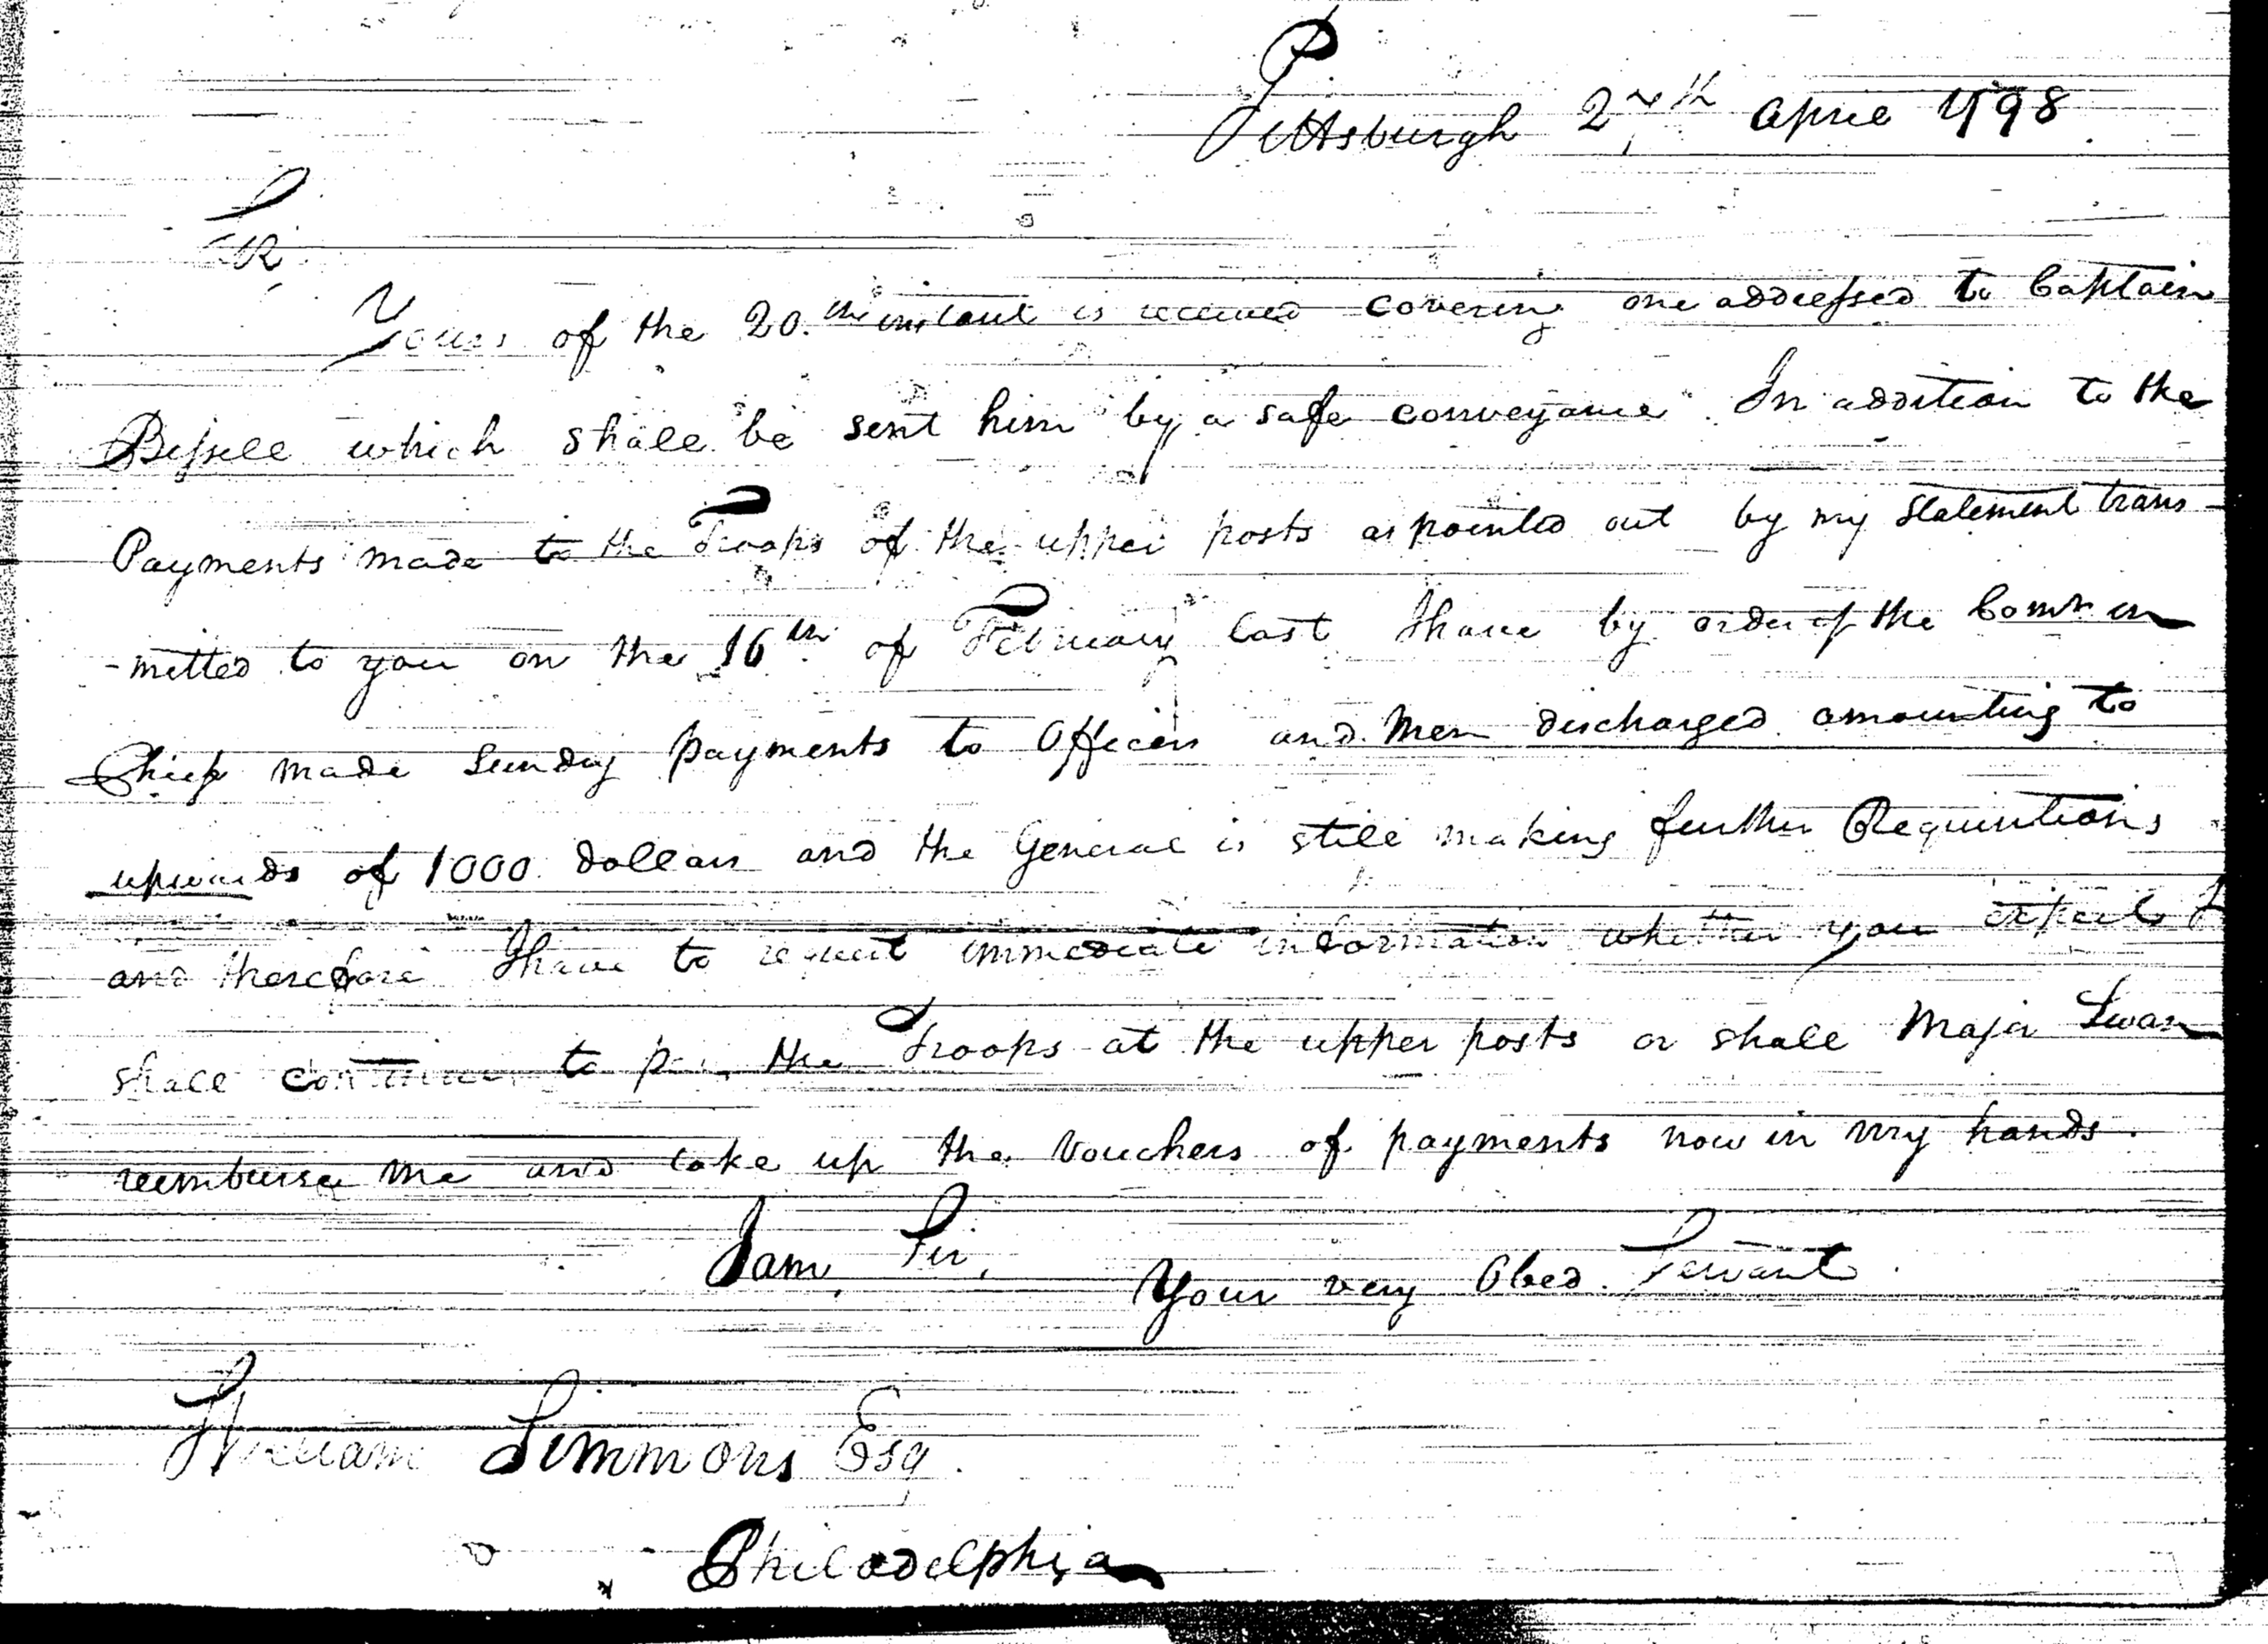 Pittsburgh 27th April 1798
Sir
Yours of the 20th instant is received covering one addressed to Captain
Bissell which shall be sent him by a safe conveyance. In addition to the
Payments made to the Troops of the upper posts as pointed out by my Statement trans-
-mitted to you on the 16th of February last I have by order of the Comr in
Chief made Sunday payments to Officers and Men discharged amounting to
upwards of 1000 dollars and the General is still making further Requisitions
and therefore I have to request immediate information whether you expect I
shall continue to pay the Troops at the upper posts or shall Major Swan
reimburse me and take up the Vouchers of payments now in my hands.
I am, Sir,
Your very Obed. Servant.
William Simmons Esq.
Philadelphia